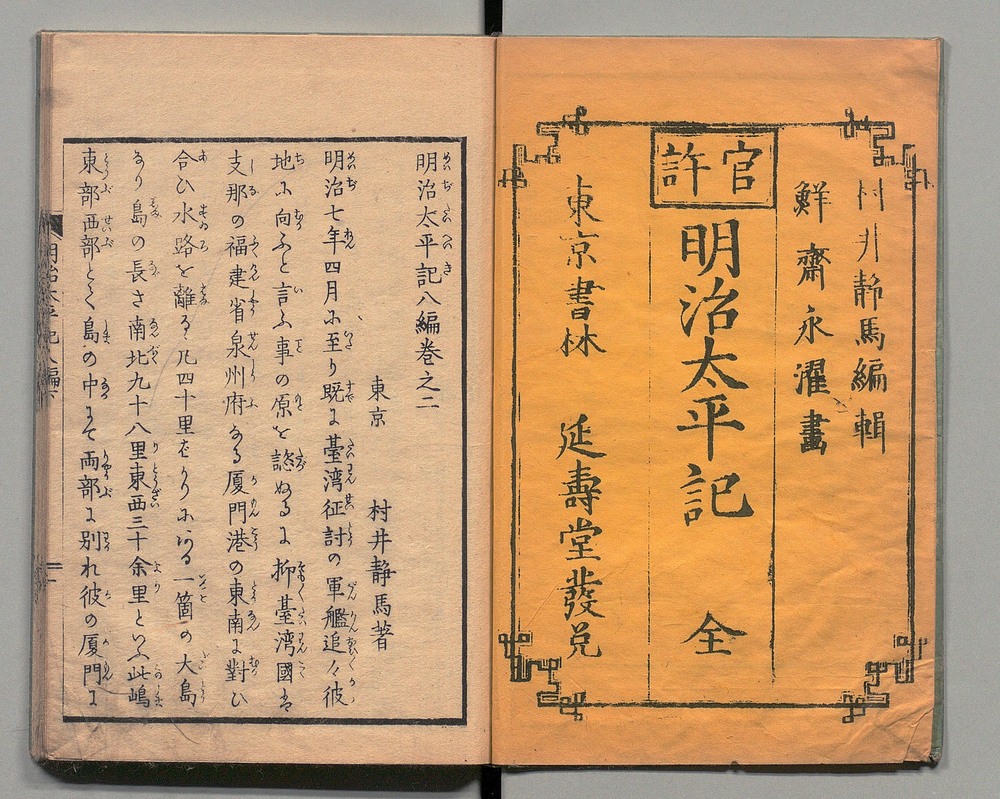 村井靜馬編輯
鮮齋永濯畫
官許
明治太平記 全
東京書林 延壽堂發兌
明治太平記八編巻之二
東京 村井静馬著
明治七年四月に至り既に臺灣征討の軍艦追々彼
地に向ふと言ふ事の原を認ぬるに抑臺湾國は
支那の福建省泉州府なる厦門港の東南に對ひ
合ひ水路を離るゝ凡四十里ばかりにある一箇の大島
なり島の長さ南北九十八里東西三十余里といふ此嶋
東部西部とて島の中にて両部に別れ彼の厦門に
明治太平記八編下